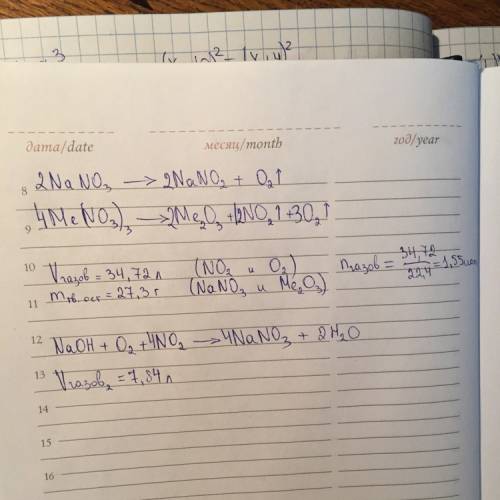 дата/date месяц/month год/year
8 2NaNO₃ → 2NaNO₂ + O₂↑
9 4Me(NO₃)₃ → 2Me₂O₃ + 12NO₂↑ + 3O₂↑
10 Vгазов = 34,72 л (NO₂ и O₂) nгазов = 34,72/22,4 = 1,55 моль
11 mтв. ост = 27,3 г (NaNO₃ и Me₂O₃)
12 NaOH + O₂ + 4NO₂ → 4NaNO₃ + 2H₂O
13 Vгазов₂ = 7,84 л
14
15
16